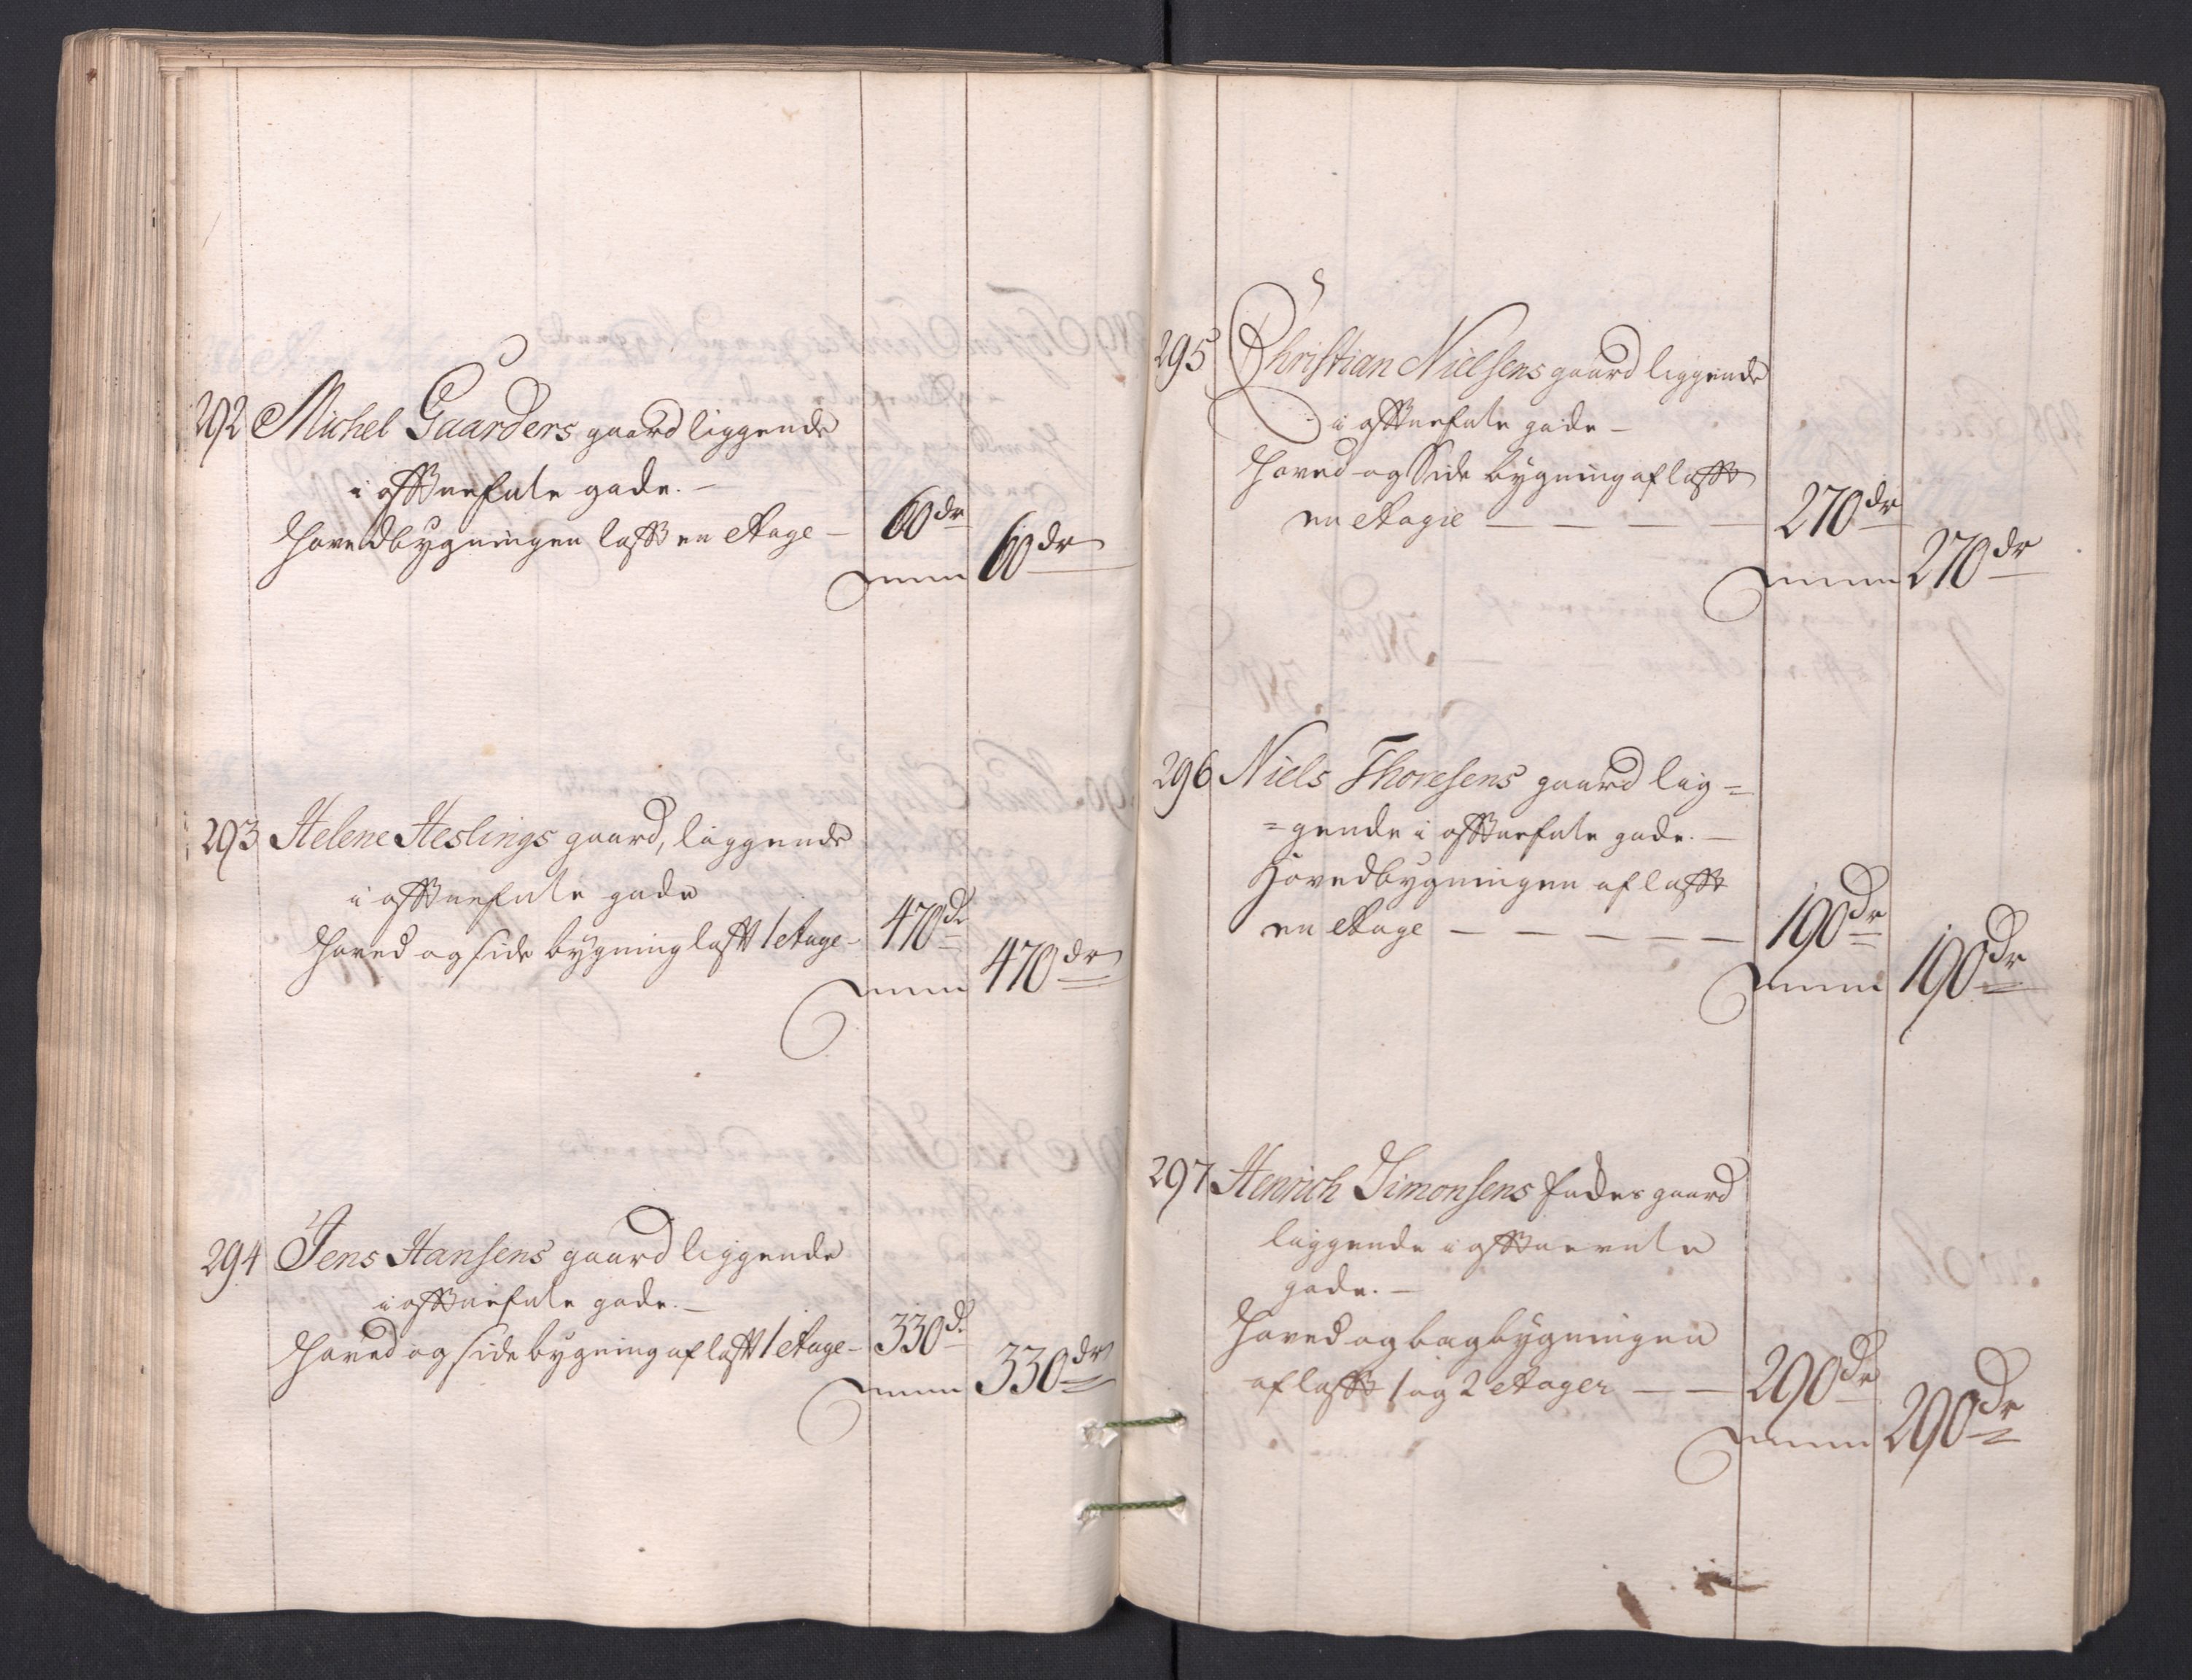 292 Michel Gaarders gaard liggende
i offtnefnte gade. —
Hovedbygningen lafft en Etage — 60 dr
Summa 60 dr
293 Helene Heslings gaard, liggende
i offtnefnte gade
Hoved og side bygning lafft 1 Etage — 470 dr
Summa 470 dr
294 Jens Hansens gaard liggende
i offtnefnte gade. —
Hoved og side bygning af lafft 1 Etage — 330 d.
Summa 330 dr
295 Christian Nielsens gaard liggende
i offtnefnte gade —
Hoved og Side bygning af lafft
en Etagie — — — — 270 dr
Summa 270 dr
296 Niels Thoresens gaard lig=
=gende i offtnefnte gade. —
Hovedbygningen af lafft
en Etage — — — — — 190 dr
Summa 190 dr
297 Henrich Simonsens gaard
liggende i offtnevnte
gade. —
Hoved og bagbygningen
af lafft 1 og 2 Etager — — 290 dr
Summa 290 dr